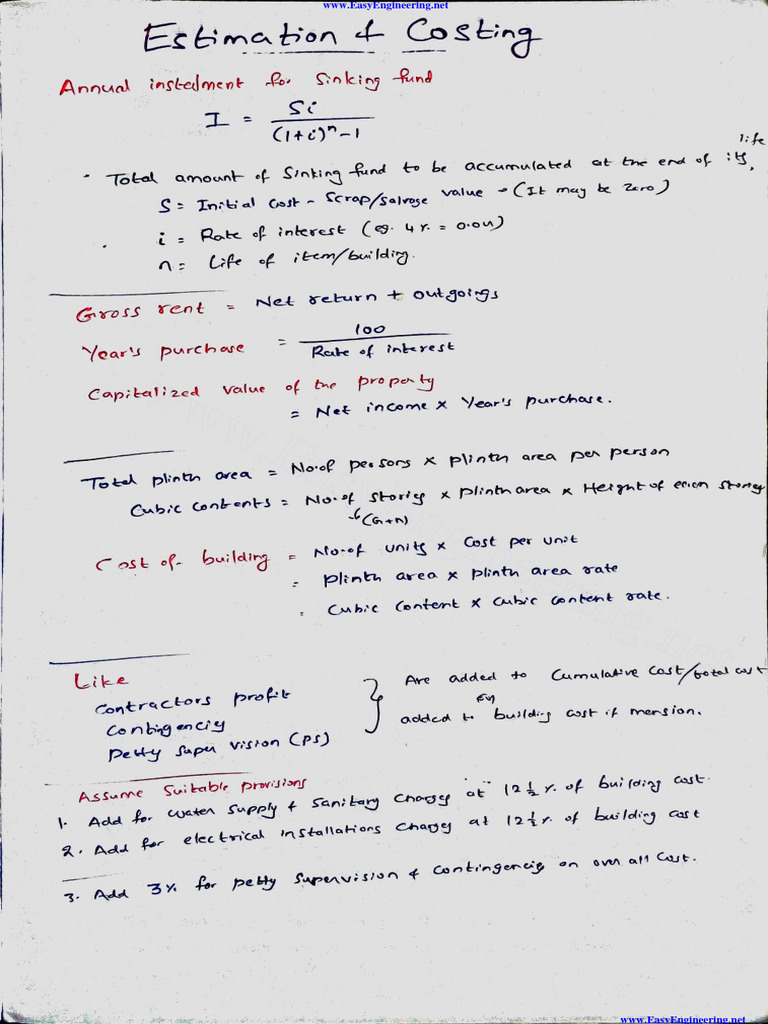 www.EasyEngineering.net
Estimation & Costing
Annual instalment for Sinking fund
I = Si / (1+i)^n - 1
life
• Total amount of Sinking fund to be accumulated at the end of its,
S = Initial Cost - Scrap/Salvage value → (It may be Zero)
i = Rate of interest (eg. 4 %. = 0.04)
n = Life of item/building.
Gross rent = Net return + outgoings
Year's purchase = 100 / Rate of interest
Capitalized value of the property
= Net income x Year's purchase.
Total plinth area = No.of persons x plinth area per person
Cubic contents = No.of stories x plinth area x Height of each storey
(G+N)
Cost of building = No.of units x Cost per unit
= plinth area x plinth area rate
= Cubic Content x Cubic content rate.
Like
Contractors profit
Contingenciy
Petty super vision (PS)
Are added to Cumulative cost/total cost
added to building cost if mension.
Assume Suitable provisions
1. Add for water supply & Sanitary Charges at 12 1/2 %. of building cost.
2. Add for electrical installations Charges at 12 1/2 %. of building cost
3. Add 3% for petty supervision & Contingencies on over all Cost.
www.EasyEngineering.net